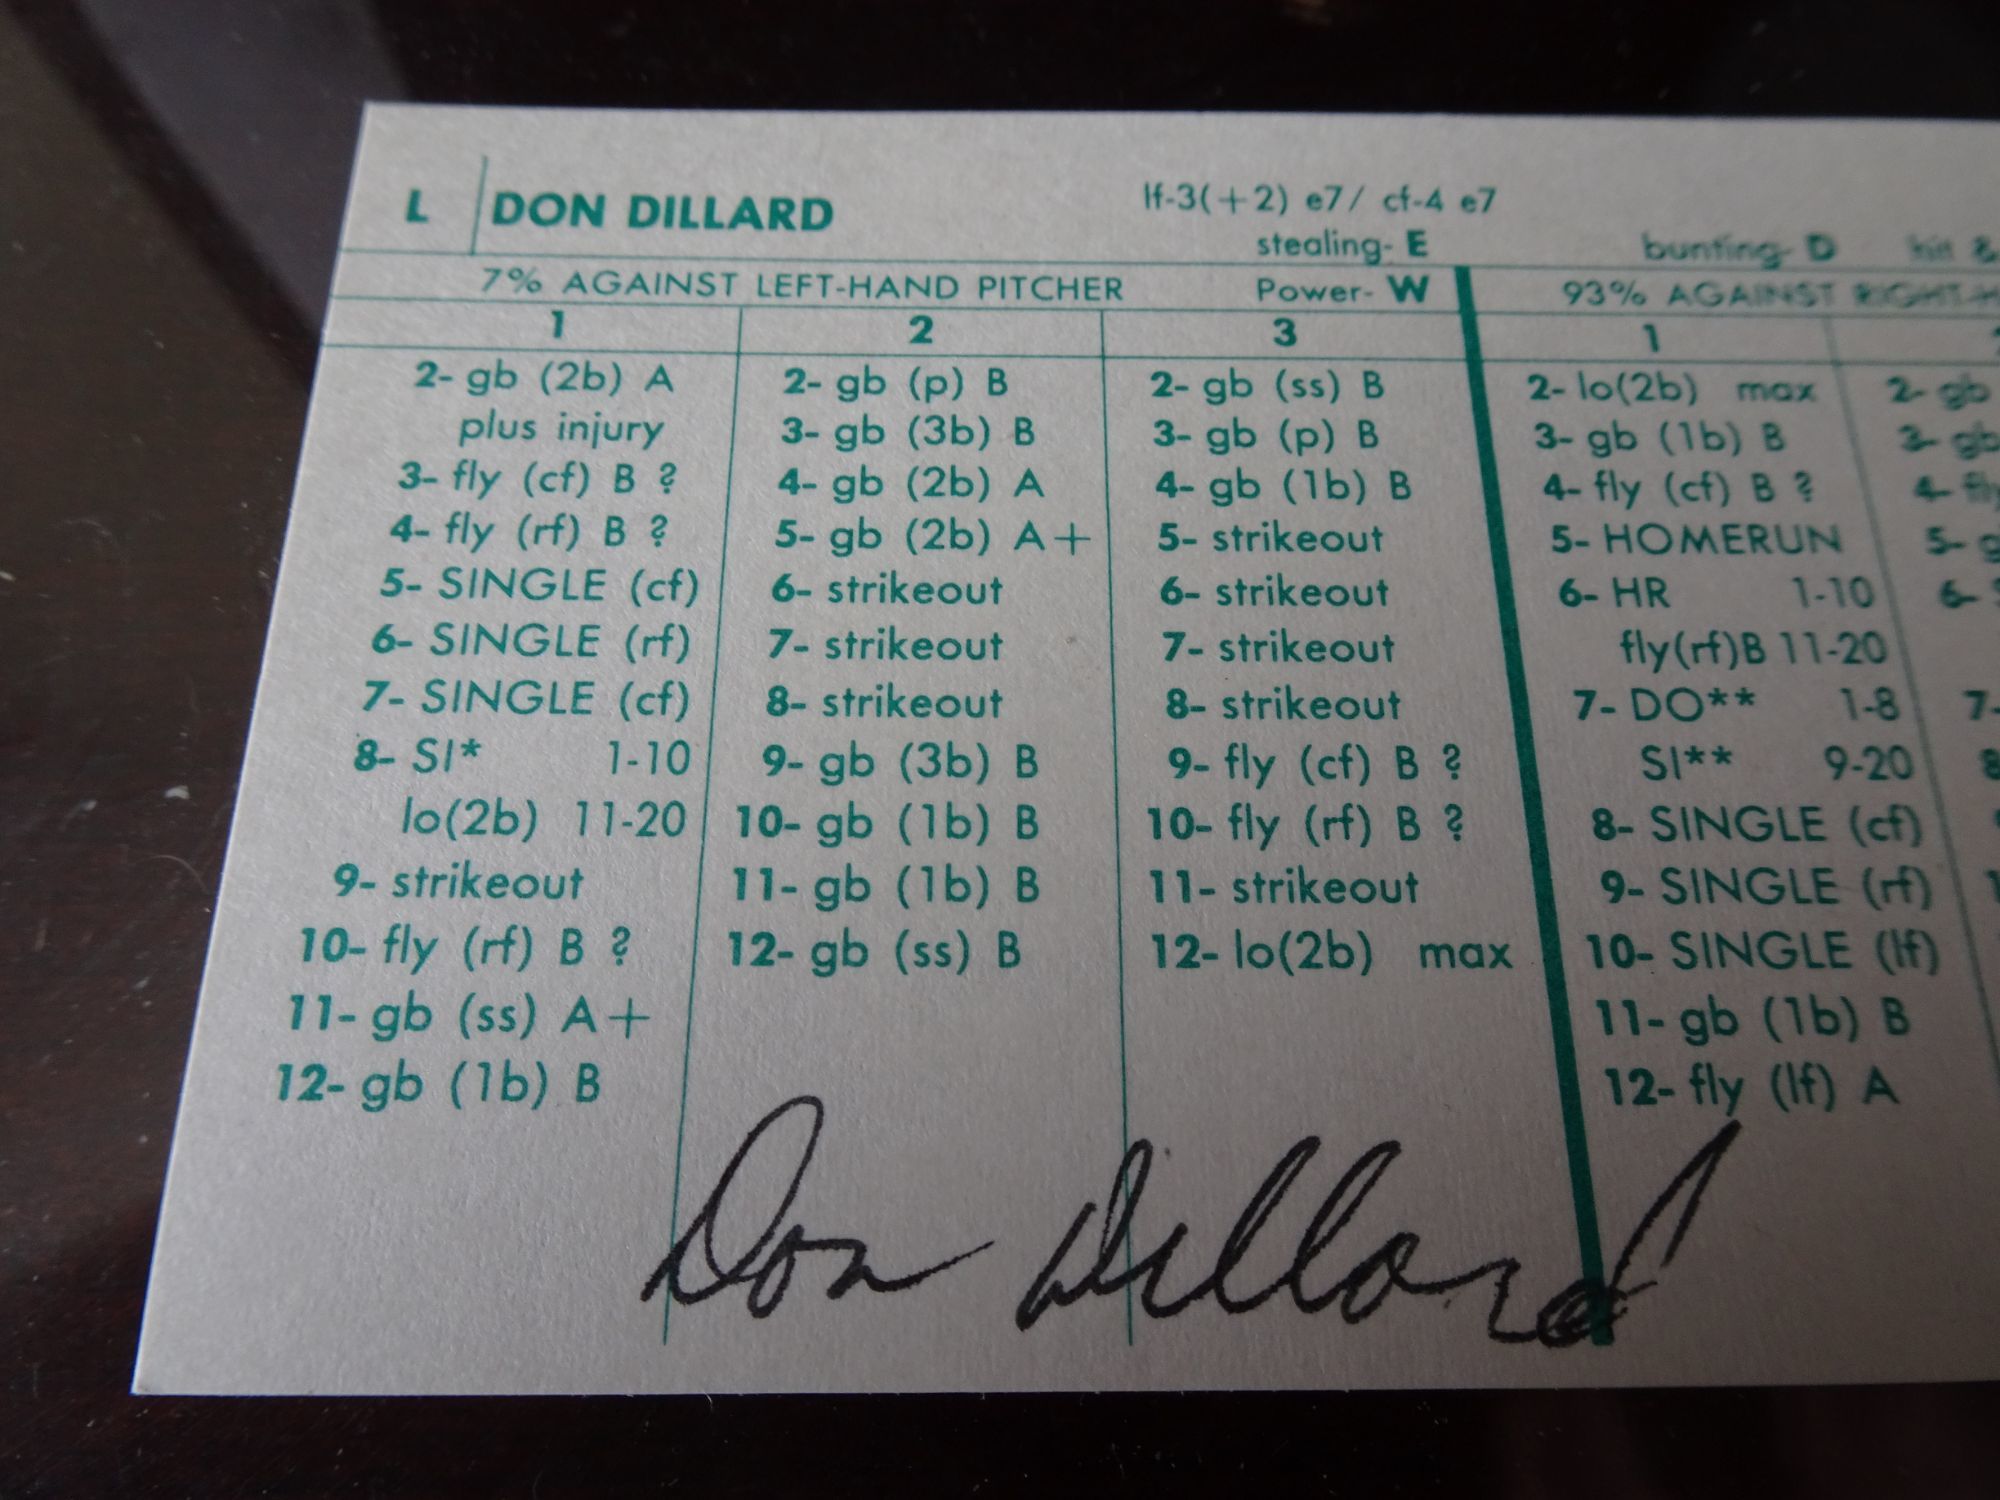 L DON DILLARD lf-3(+2) e7/ cf-4 e7
stealing- E bunting- D hit &
7% AGAINST LEFT-HAND PITCHER Power- W 93% AGAINST RIGHT-H
1 2 3 1
2- gb (2b) A
plus injury
3- fly (cf) B ?
4- fly (rf) B ?
5- SINGLE (cf)
6- SINGLE (rf)
7- SINGLE (cf)
8- SI* 1-10
lo(2b) 11-20
9- strikeout
10- fly (rf) B ?
11- gb (ss) A+
12- gb (1b) B
2- gb (p) B
3- gb (3b) B
4- gb (2b) A
5- gb (2b) A+
6- strikeout
7- strikeout
8- strikeout
9- gb (3b) B
10- gb (1b) B
11- gb (1b) B
12- gb (ss) B
2- gb (ss) B
3- gb (p) B
4- gb (1b) B
5- strikeout
6- strikeout
7- strikeout
8- strikeout
9- fly (cf) B ?
10- fly (rf) B ?
11- strikeout
12- lo(2b) max
2- lo(2b) max
3- gb (1b) B
4- fly (cf) B ?
5- HOMERUN
6- HR 1-10
fly(rf)B 11-20
7- DO** 1-8
SI** 9-20
8- SINGLE (cf)
9- SINGLE (rf)
10- SINGLE (lf)
11- gb (1b) B
12- fly (lf) A
2- gb
3- gb
4- fly
5- g
6-
7-
8
Don Dillard